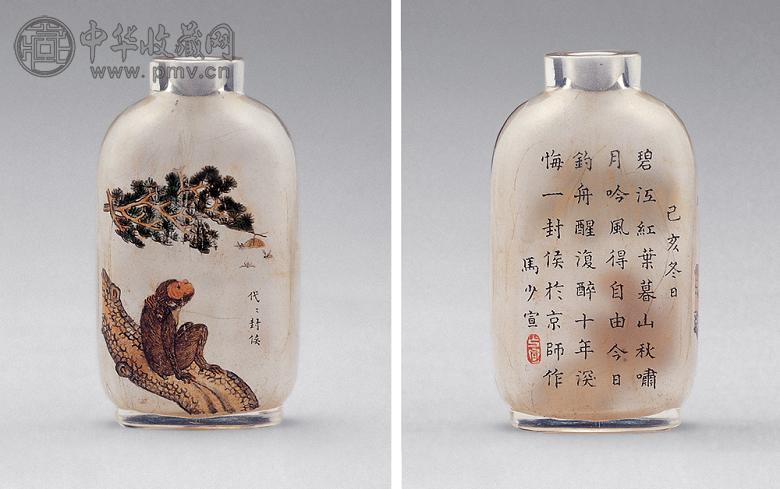 中华收藏网
www.pmv.cn
代〻封侯
己亥冬日
碧江紅葉暮山秋嘯
月吟風得自由今日
釣舟醒復醉十年深
悔一封侯於京師作
馬少宣